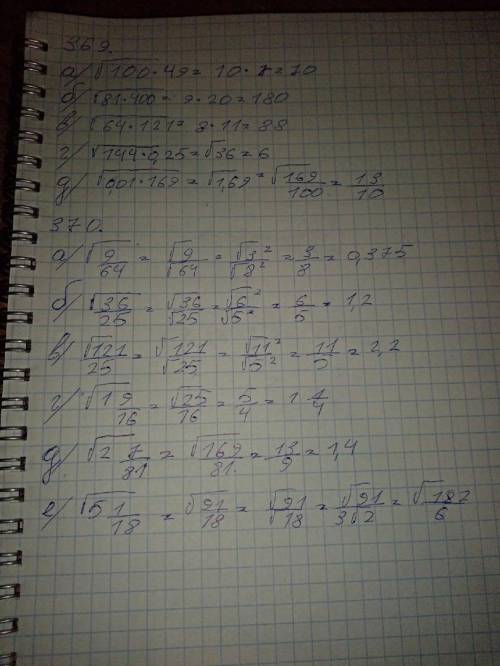 369.
а) √100·49 = 10·7 = 70
б) √81·400 = 9·20 = 180
в) √64·121 = 8·11 = 88
г) √144·0,25 = √36 = 6
д) √0,01·169 = √1,69 = √169/100 = 13/10
370.
а) √9/64 = √9/√64 = √3²/√8² = 3/8 = 0,375
б) √36/25 = √36/√25 = √6²/√5² = 6/5 = 1,2
в) √121/25 = √121/√25 = √11²/√5² = 11/5 = 2,2
г) √1 9/16 = √25/16 = 5/4 = 1 1/4
д) √2 7/81 = √169/81 = 13/9 = 1,4
е) √5 1/18 = √91/18 = √91/√18 = √91/3√2 = √182/6